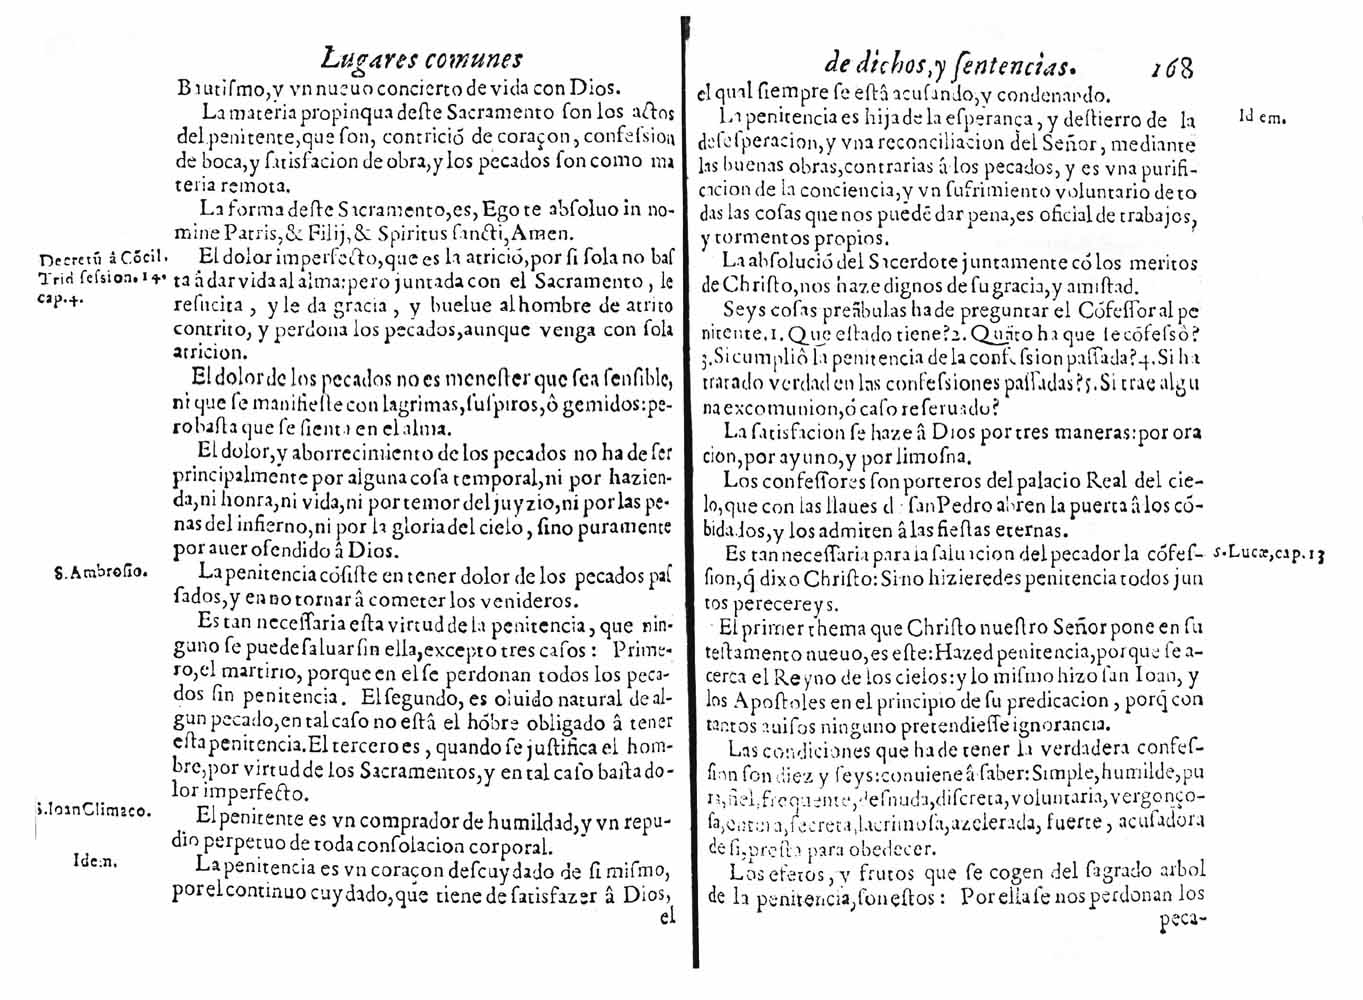 Lugares comunes
Bautiſmo, y vn nueuo concierto de vida con Dios.
La materia propinqua deſte Sacramento ſon los actos
del penitente, que ſon, contrició de coraçon, confeſsion
de boca, y ſatisfacion de obra, y los pecados ſon como ma
teria remota.
La forma deſte Sacramento, es, Ego te abſoluo in no-
mine Patris, & Filij, & Spiritus ſancti, Amen.
Decretū â Cōcil.
Trid ſeſsion. 14.
cap. 4.
El dolor imperfecto, que es la atrició, por ſi ſola no baſ
ta â dar vida al alma: pero juntada con el Sacramento, le
reſucita, y le da gracia, y buelue al hombre de atrito
contrito, y perdona los pecados, aunque venga con ſola
atricion.
El dolor de los pecados no es meneſter que ſea ſenſible,
ni que ſe manifieſte con lagrimas, ſuſpiros, ô gemidos: pe-
ro baſta que ſe ſienta en el alma.
El dolor, y aborrecimiento de los pecados no ha de ſer
principalmente por alguna coſa temporal, ni por hazien-
da, ni honra, ni vida, ni por temor del juyzio, ni por las pe-
nas del infierno, ni por la gloria del cielo, ſino puramente
por auer ofendido â Dios.
S. Ambroſio.
La penitencia cóſiſte en tener dolor de los pecados paſ
ſados, y en no tornar â cometer los venideros.
Es tan neceſſaria eſta virtud de la penitencia, que nin-
guno ſe puede ſaluar ſin ella, excepto tres caſos: Prime-
ro, el martirio, porque en el ſe perdonan todos los peca-
dos ſin penitencia. El ſegundo, es oluido natural de al-
gun pecado, en tal caſo no eſtâ el hóbre obligado â tener
eſta penitencia. El tercero es, quando ſe juſtifica el hom-
bre, por virtud de los Sacramentos, y en tal caſo baſta do-
lor imperfecto.
S. Ioan Climaco.
El penitente es vn comprador de humildad, y vn repu-
dio perpetuo de toda conſolacion corporal.
Idem.
La penitencia es vn coraçon deſcuydado de ſi miſmo,
por el continuo cuydado, que tiene de ſatisfazer â Dios,
el
de dichos, y ſentencias. 168
el qual ſiempre ſe eſtâ acuſando, y condenando.
Idem.
La penitencia es hija de la eſperança, y deſtierro de la
deſeſperacion, y vna reconciliacion del Señor, mediante
las buenas obras, contrarias â los pecados, y es vna purifi-
cacion de la conciencia, y vn ſufrimiento voluntario de to
das las coſas que nos puedē dar pena, es oficial de trabajos,
y tormentos propios.
La abſolució del Sacerdote juntamente có los meritos
de Chriſto, nos haze dignos de ſu gracia, y amiſtad.
Seys coſas preãbulas ha de preguntar el Cófeſſor al pe
nitente. 1. Que eſtado tiene? 2. Quãto ha que ſe cófeſsò?
3. Si cumpliô la penitencia de la confeſsion paſſada? 4. Si ha
tratado verdad en las confeſsiones paſſadas? 5. Si trae algu
na excomunion, ó caſo reſeruado?
La ſatisfacion ſe haze â Dios por tres maneras: por ora
cion, por ayuno, y por limoſna.
Los confeſſores ſon porteros del palacio Real del cie-
lo, que con las llaues de ſan Pedro abren la puerta â los có-
bidados, y los admiten â las fieſtas eternas.
Es tan neceſſaria para la ſaluacion del pecador la cófeſ-
S. Lucæ, cap. 13
ſion, q̃ dixo Chriſto: Si no hizieredes penitencia todos jun
tos perecereys.
El primer thema que Chriſto nueſtro Señor pone en ſu
teſtamento nueuo, es eſte: Hazed penitencia, porque ſe a-
cerca el Reyno de los cielos: y lo miſmo hizo ſan Ioan, y
los Apoſtoles en el principio de ſu predicacion, porq̃ con
tantos auiſos ninguno pretendieſſe ignorancia.
Las condiciones que ha de tener la verdadera confeſ-
ſion ſon diez y ſeys: conuiene â ſaber: Simple, humilde, pu
ra, fiel, frequente, deſnuda, diſcreta, voluntaria, vergonço-
ſa, entera, ſecreta, lacrimoſa, azelerada, fuerte, acuſadora
de ſi, preſta para obedecer.
Los efetos, y frutos que ſe cogen del ſagrado arbol
de la penitencia, ſon eſtos: Por ella ſe nos perdonan los
peca-